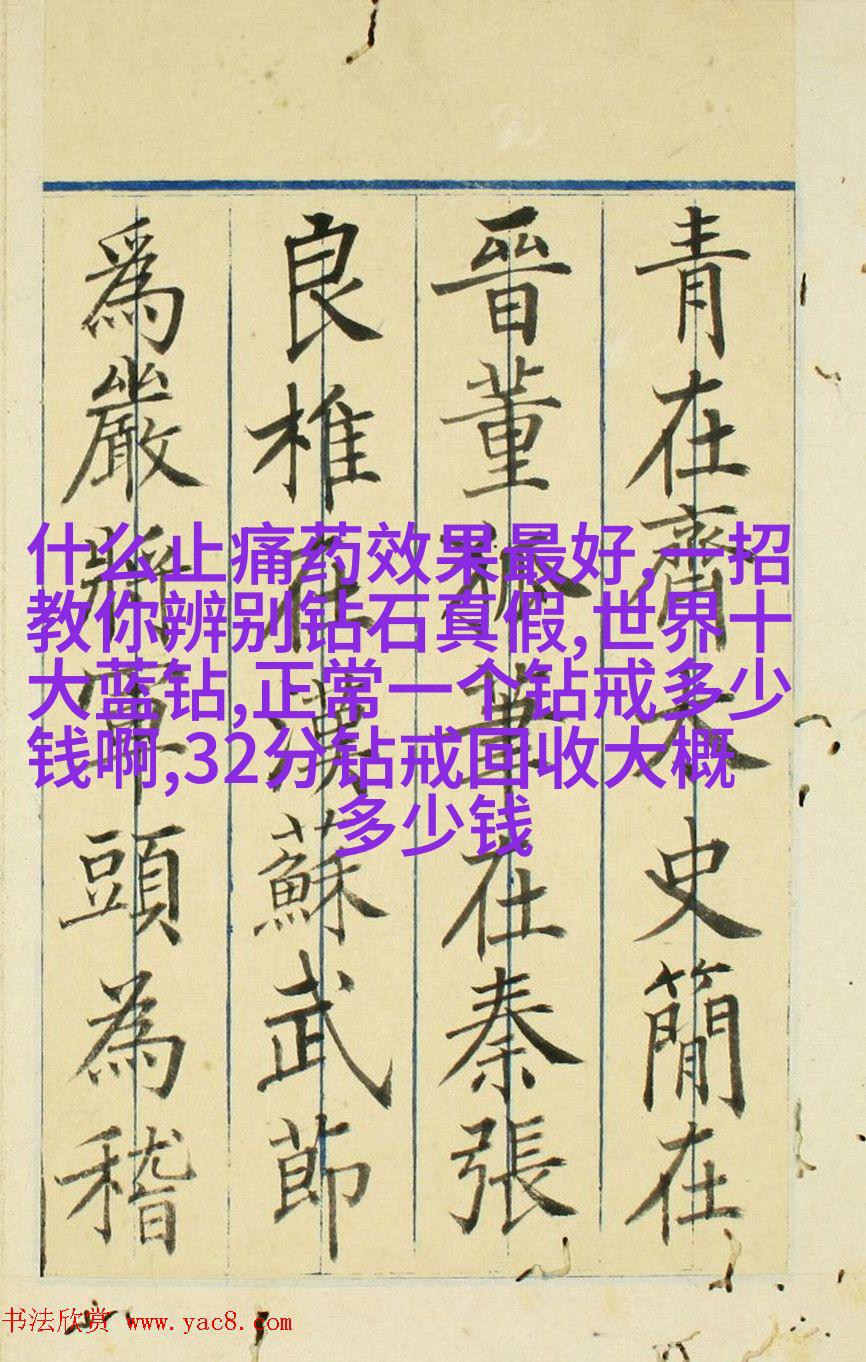 什么止痛药效果最好,一招
教你辨别钻石真假,世界十
大蓝钻,正常一个钻戒多少
钱啊,32分钻戒回收大概
多少钱
青在齊太史簡在
晉董狐筆在秦張
良椎在漢蘇武節
爲嚴將軍頭為稽
书法欣赏 www.yac8.com